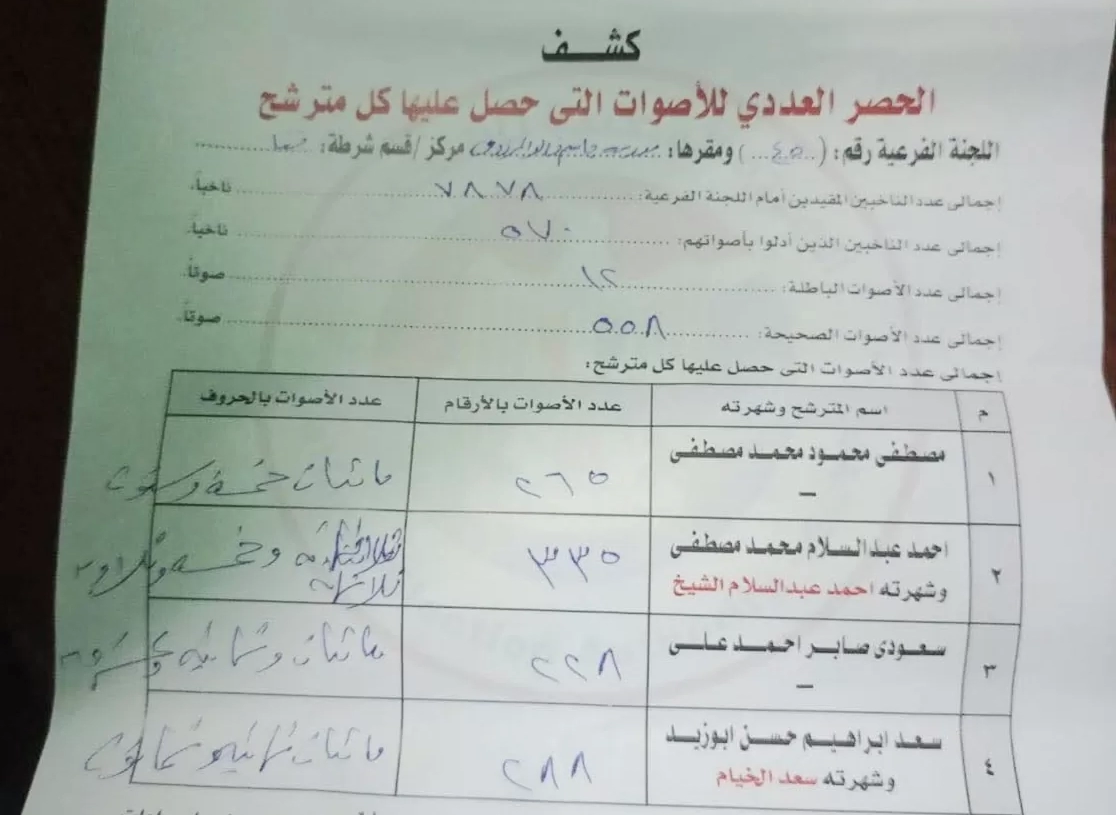 كشف
الحصر العددي للأصوات التى حصل عليها كل مترشح
اللجنة الفرعية رقم: (..٤٥...) ومقرها: مركز /قسم شرطة:
إجمالى عدد الناخبين المقيدين أمام اللجنة الفرعية: ٧٨٧٨ ناخباً.
إجمالى عدد الناخبين الذين أدلوا بأصواتهم: ٥٧٠ ناخباً.
إجمالى عدد الأصوات الباطلة: ١٢ صوتاً.
إجمالى عدد الأصوات الصحيحة: ٥٥٨ صوتاً.
إجمالى عدد الأصوات التى حصل عليها كل مترشح:
م اسم المترشح وشهرته عدد الأصوات بالأرقام عدد الأصوات بالحروف
١ مصطفى محمود محمد مصطفى ٢٦٥ مائتان خمسة وستون
–
٢ احمد عبدالسلام محمد مصطفى ٣٣٥ وخمسة وثلاثون
وشهرته احمد عبدالسلام الشيخ ثلاثمائة
٣ سعودى صابر احمد على ٢٢٨ مائتان وثمانيه وعشرون
–
٤ سعد ابراهيم حسن ابوزيد ٢٨٨ مائتان ثمانيه وثمانون
وشهرته سعد الخيام